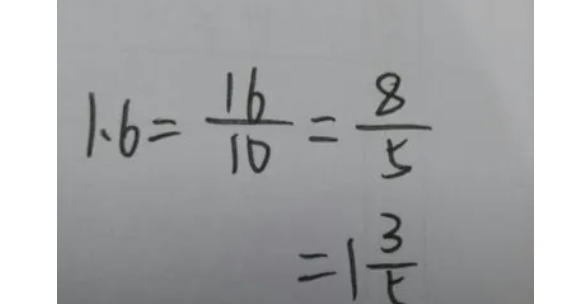 1.6 = 16/10 = 8/5
= 1 3/5